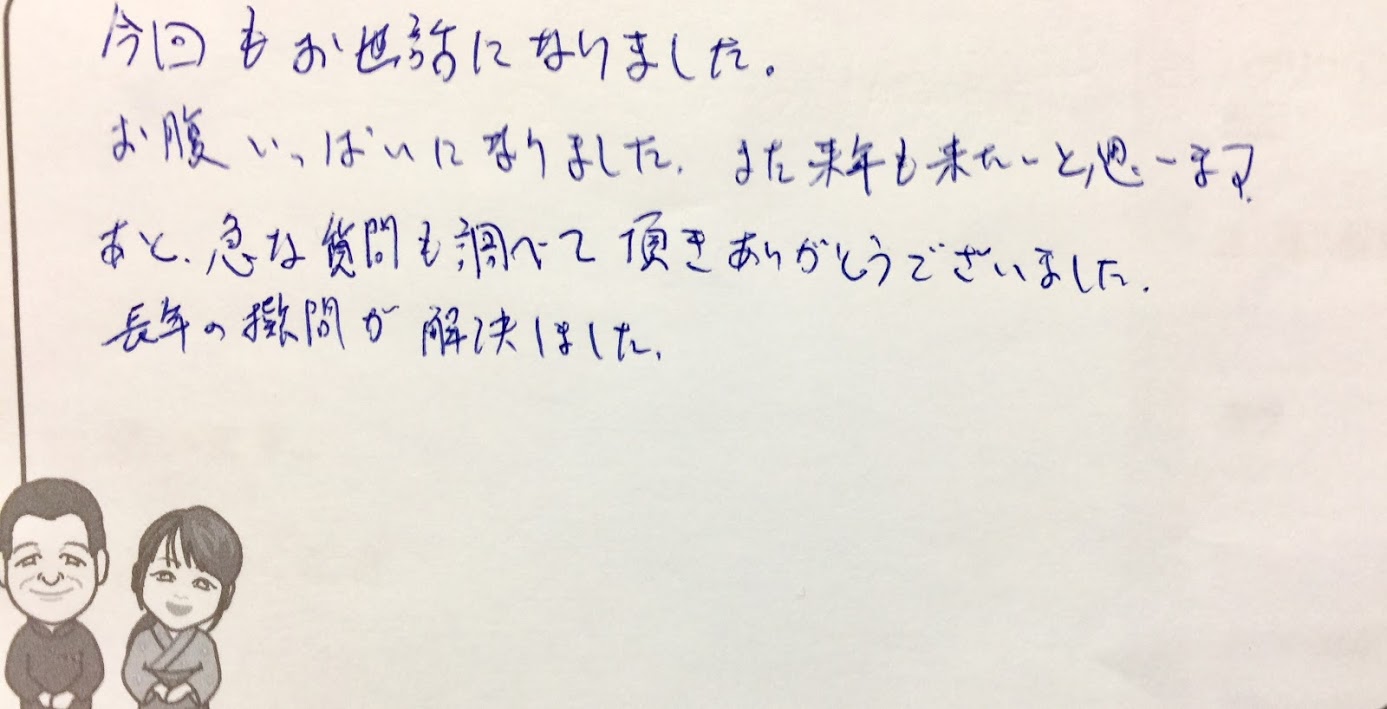 今回もお世話になりました。
お腹いっぱいになりました。また来年も来たいと思います。
あと、急な質問も調べて頂きありがとうございました。
長年の疑問が解決しました。